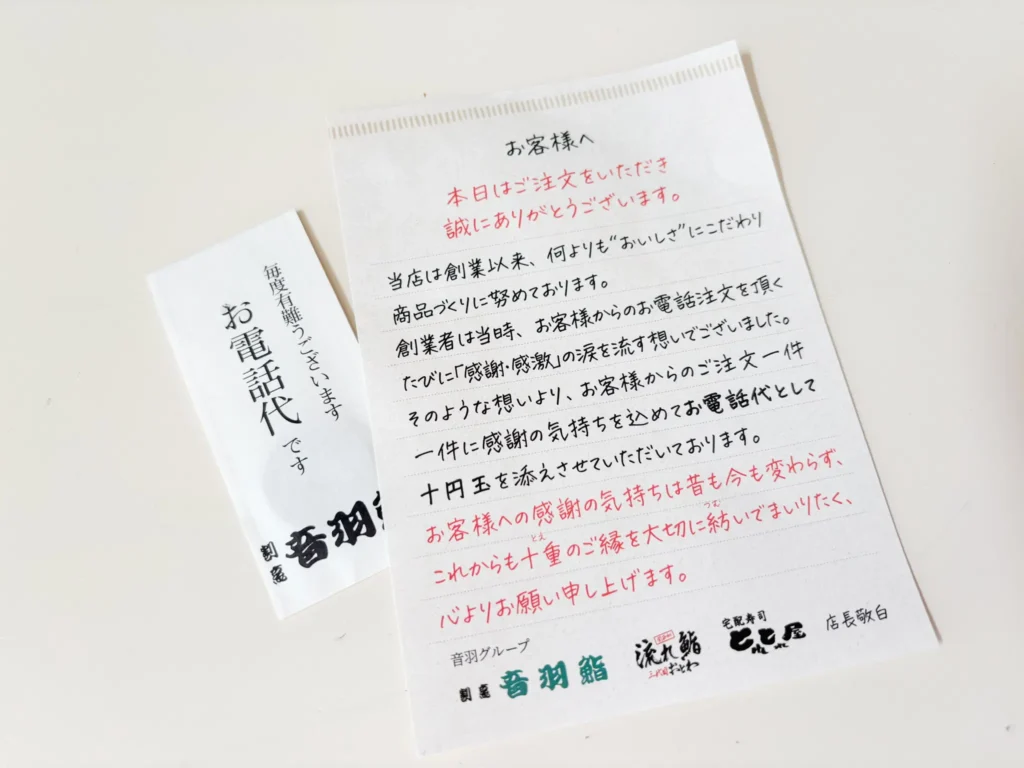 お客様へ
本日はご注文をいただき
誠にありがとうございます。
当店は創業以来、何よりも“おいしさ”にこだわり
商品づくりに努めております。
創業者は当時、お客様からのお電話注文を頂く
たびに「感謝・感激」の涙を流す想いでございました。
そのような想いより、お客様からのご注文一件
一件に感謝の気持ちを込めてお電話代として
十円玉を添えさせていただいております。
お客様への感謝の気持ちは昔も今も変わらず、
これからも十重のご縁を大切に紡いでまいりたく、
とえ
つむ
心よりお願い申し上げます。
音羽グループ
割烹 音羽鮨
流れ鮨
おとわ
宅配寿司
とと屋
店長敬白
毎度有難うございます
お電話代です
割烹 音羽